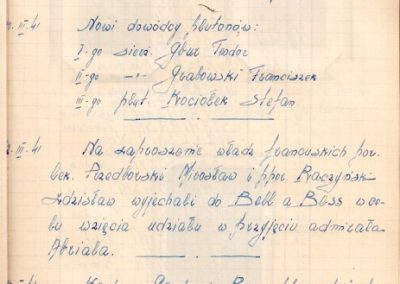 III 41 Nowi dowódcy plutonów:
I-go sierż. Gbur Teodor
II-go -"- Grabowski Franciszek
III-go plut. Kociołek Stefan
III-41 Na zaproszenie władz francuskich por.
bek. Przedborski Mirosław i ppor. Raczyński
Zdzisław wyjechali do Bell a Bless w ce-
lu wzięcia udziału w przyjęciu admirała
Abriala.